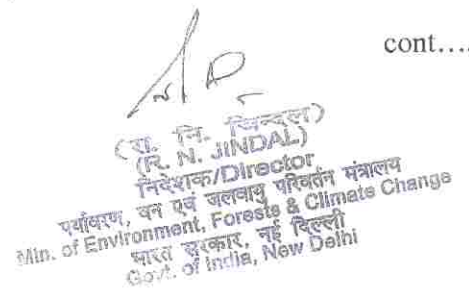 cont....
(रा. नि. जिन्दल)
(R. N. JINDAL)
निदेशक/Director
पर्यावरण, वन एवं जलवायु परिवर्तन मंत्रालय
Min. of Environment, Forests & Climate Change
भारत सरकार, नई दिल्ली
Govt. of India, New Delhi